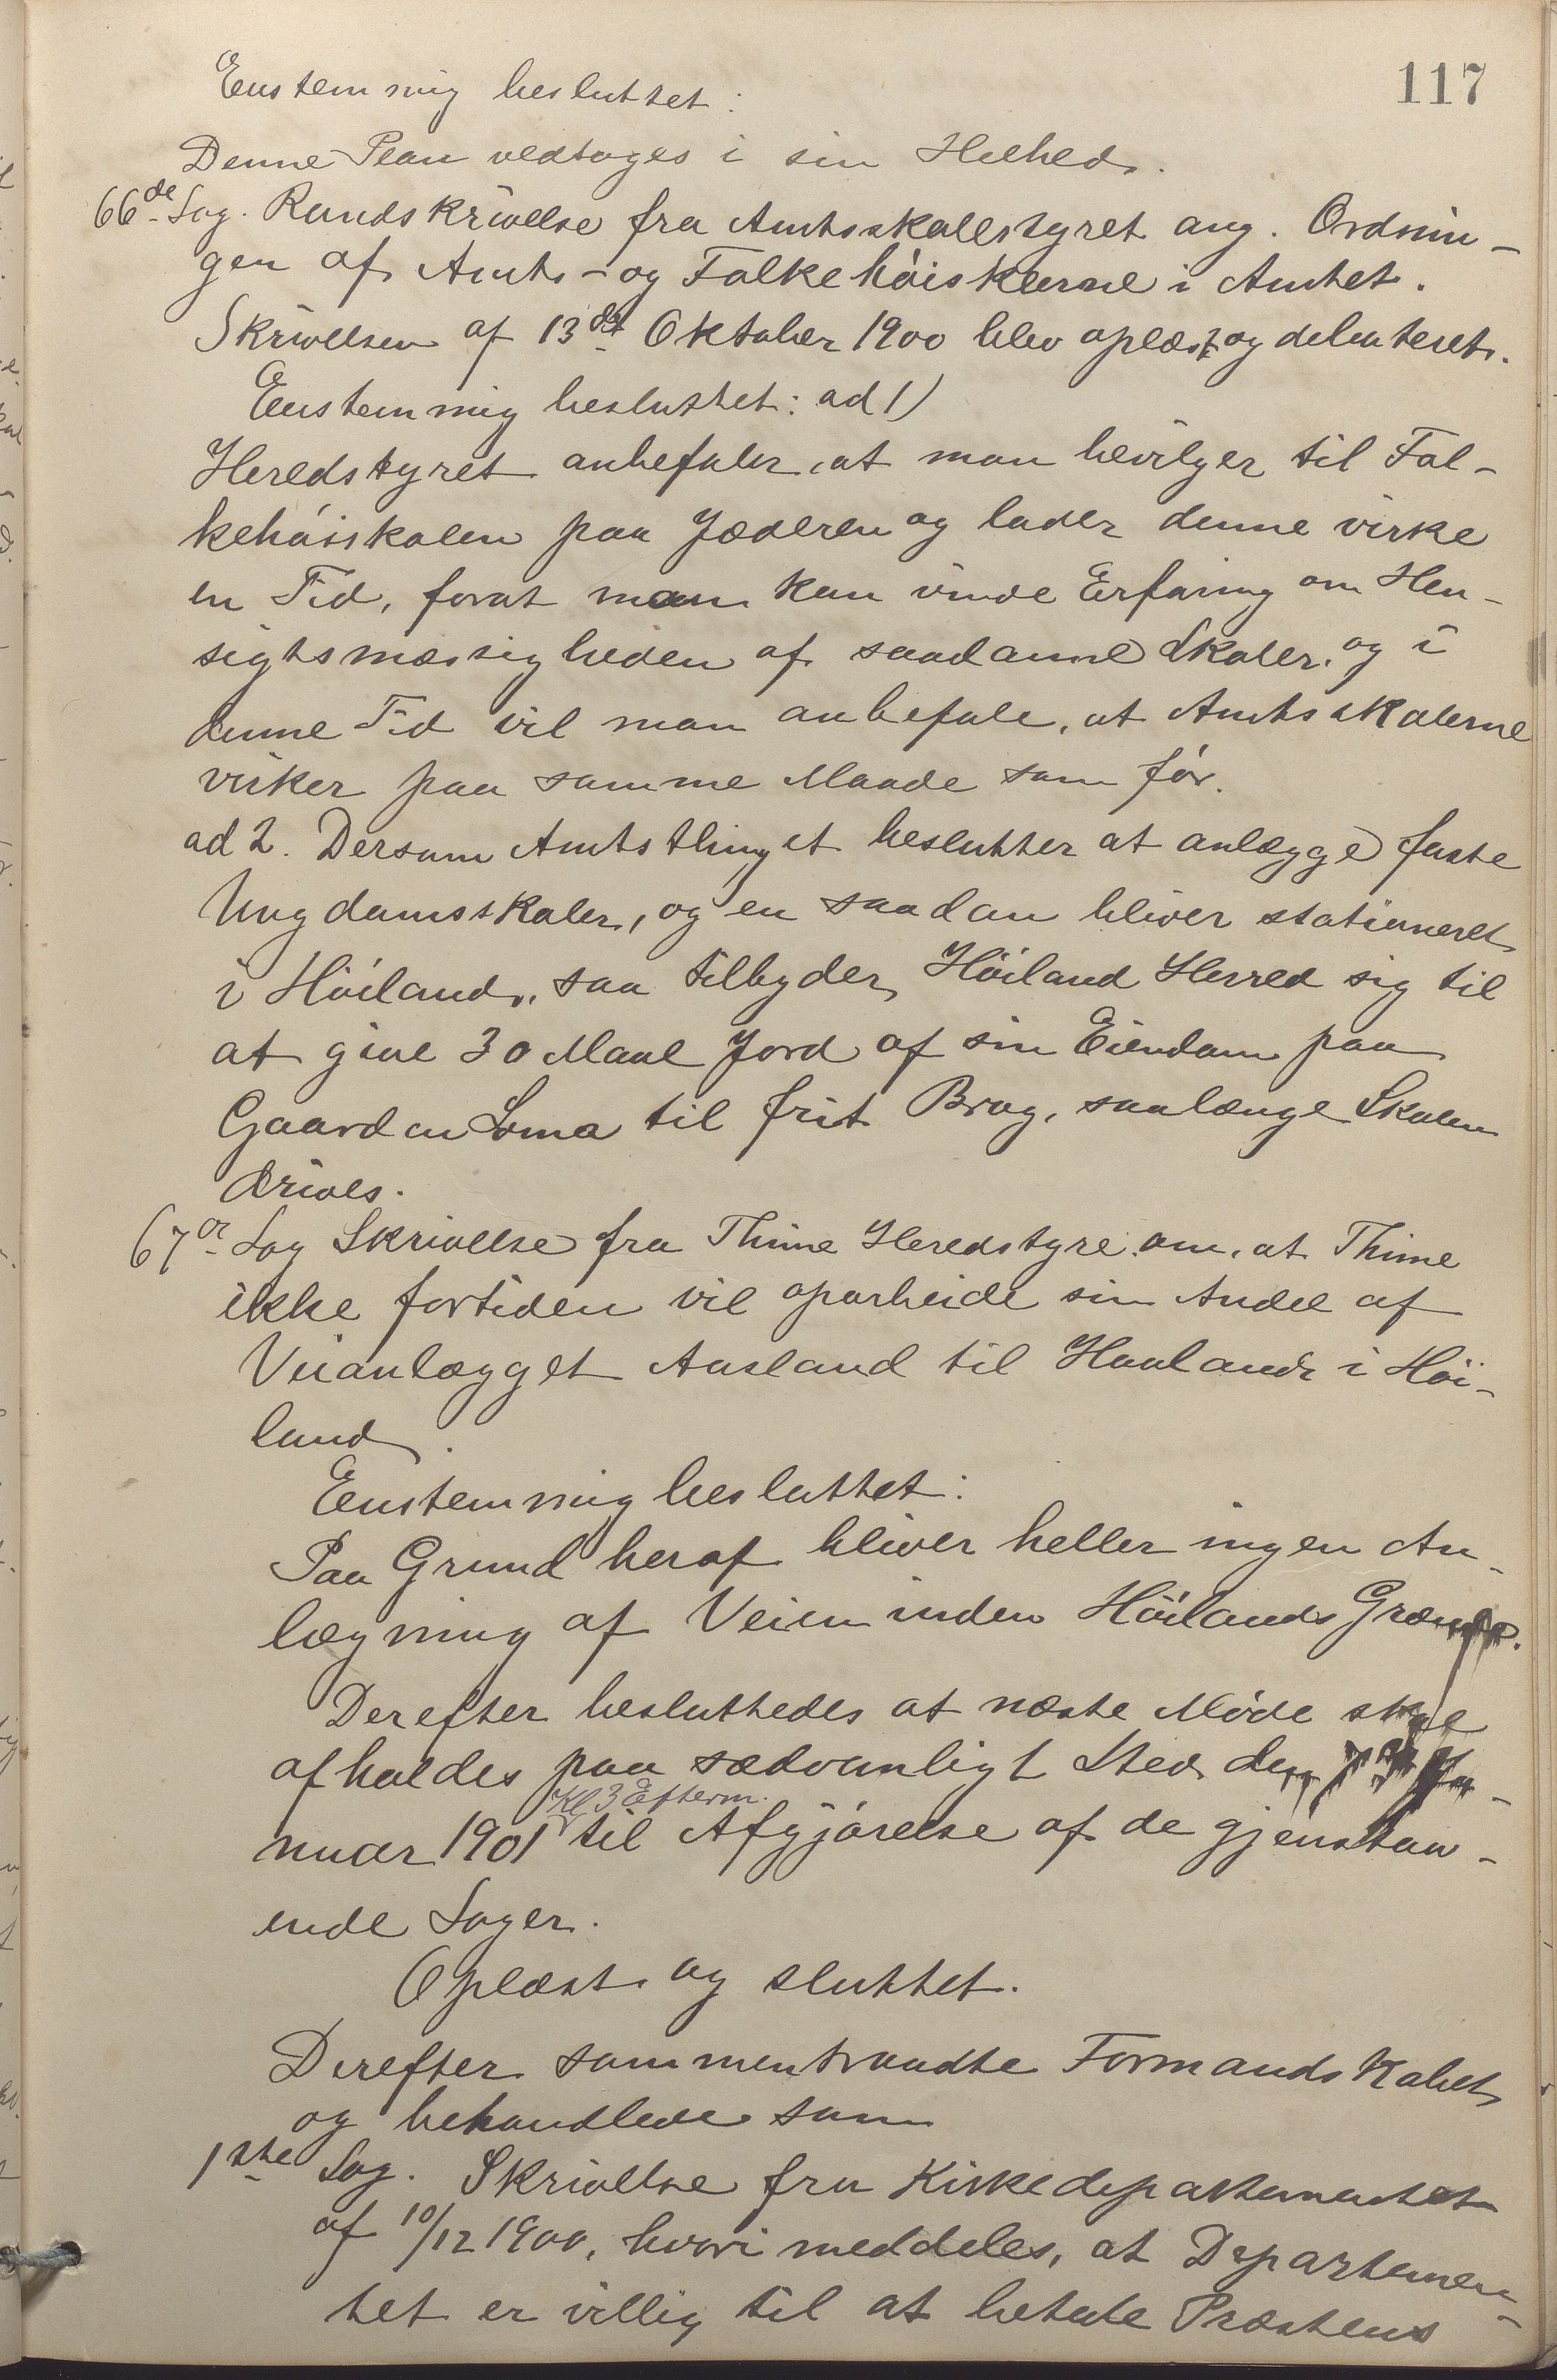 117
Eenstemmig besluttet:
Denne Plan vedtages i sin Helhed.
66de Sag. Rundskrivelse fra Amtsskolestyret ang. Ordnin-
gen af Amts- og Folkehöiskolerne i Amtet.
Skrivelsen af 13de Oktober 1900 blev oplæst og debateret.
Eenstemmig besluttet: ad 1)
Heredstyret anbefaler, at man bevilger til Fol-
kehöiskolen paa Jæderen og lader denne virke
en Tid, forat man kan vinde Erfaring om Hen-
sigtsmæssigheden af saadanne Skoler, og i
denne Tid vil man anbefale, at Amtsskolerne
virker paa samme Maade som för.
ad 2. Dersom Amtsthinget beslutter at anlægge faste
Ungdomsskoler, og en saadan bliver stationeret
i Höiland, saa tilbyder Höiland Herred sig til
at give 30 Maal Jord af sin Eiendom paa
Gaarden Soma til frit Brug, saalænge Skolen
drives.
67de Sag Skrivelse fra Thime Heredstyre om, at Thime
ikke fortiden vil oparbeide sin Andel af
Veianlægget Aasland til Haaland i Höi-
land.
Eenstemmig besluttet:
Paa Grund heraf bliver heller ingen An-
lægning af Veien inden Höilands Grænse.
Derefter besluttedes at næste Möde skal
afholdes paa sædvanligt Sted den Ja-
Kl 3 Efterm.
nuar 1901 til Afgjörelse af de gjenstaa-
ende Sager.
Oplæst og sluttet.
Derefter sammentraadte Formandskabet
og behandlede som
1ste Sag. Skrivelse fra Kirkedepartementet
af 10/12 1900, hvori meddeles, at Departemen-
tet er villig til at betale Præstens